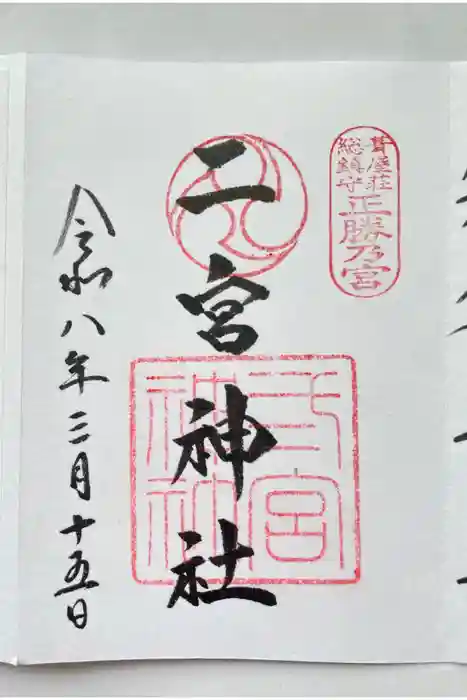 葺屋荘
総鎮守
正勝乃宮
二宮神社
令和八年三月十五日